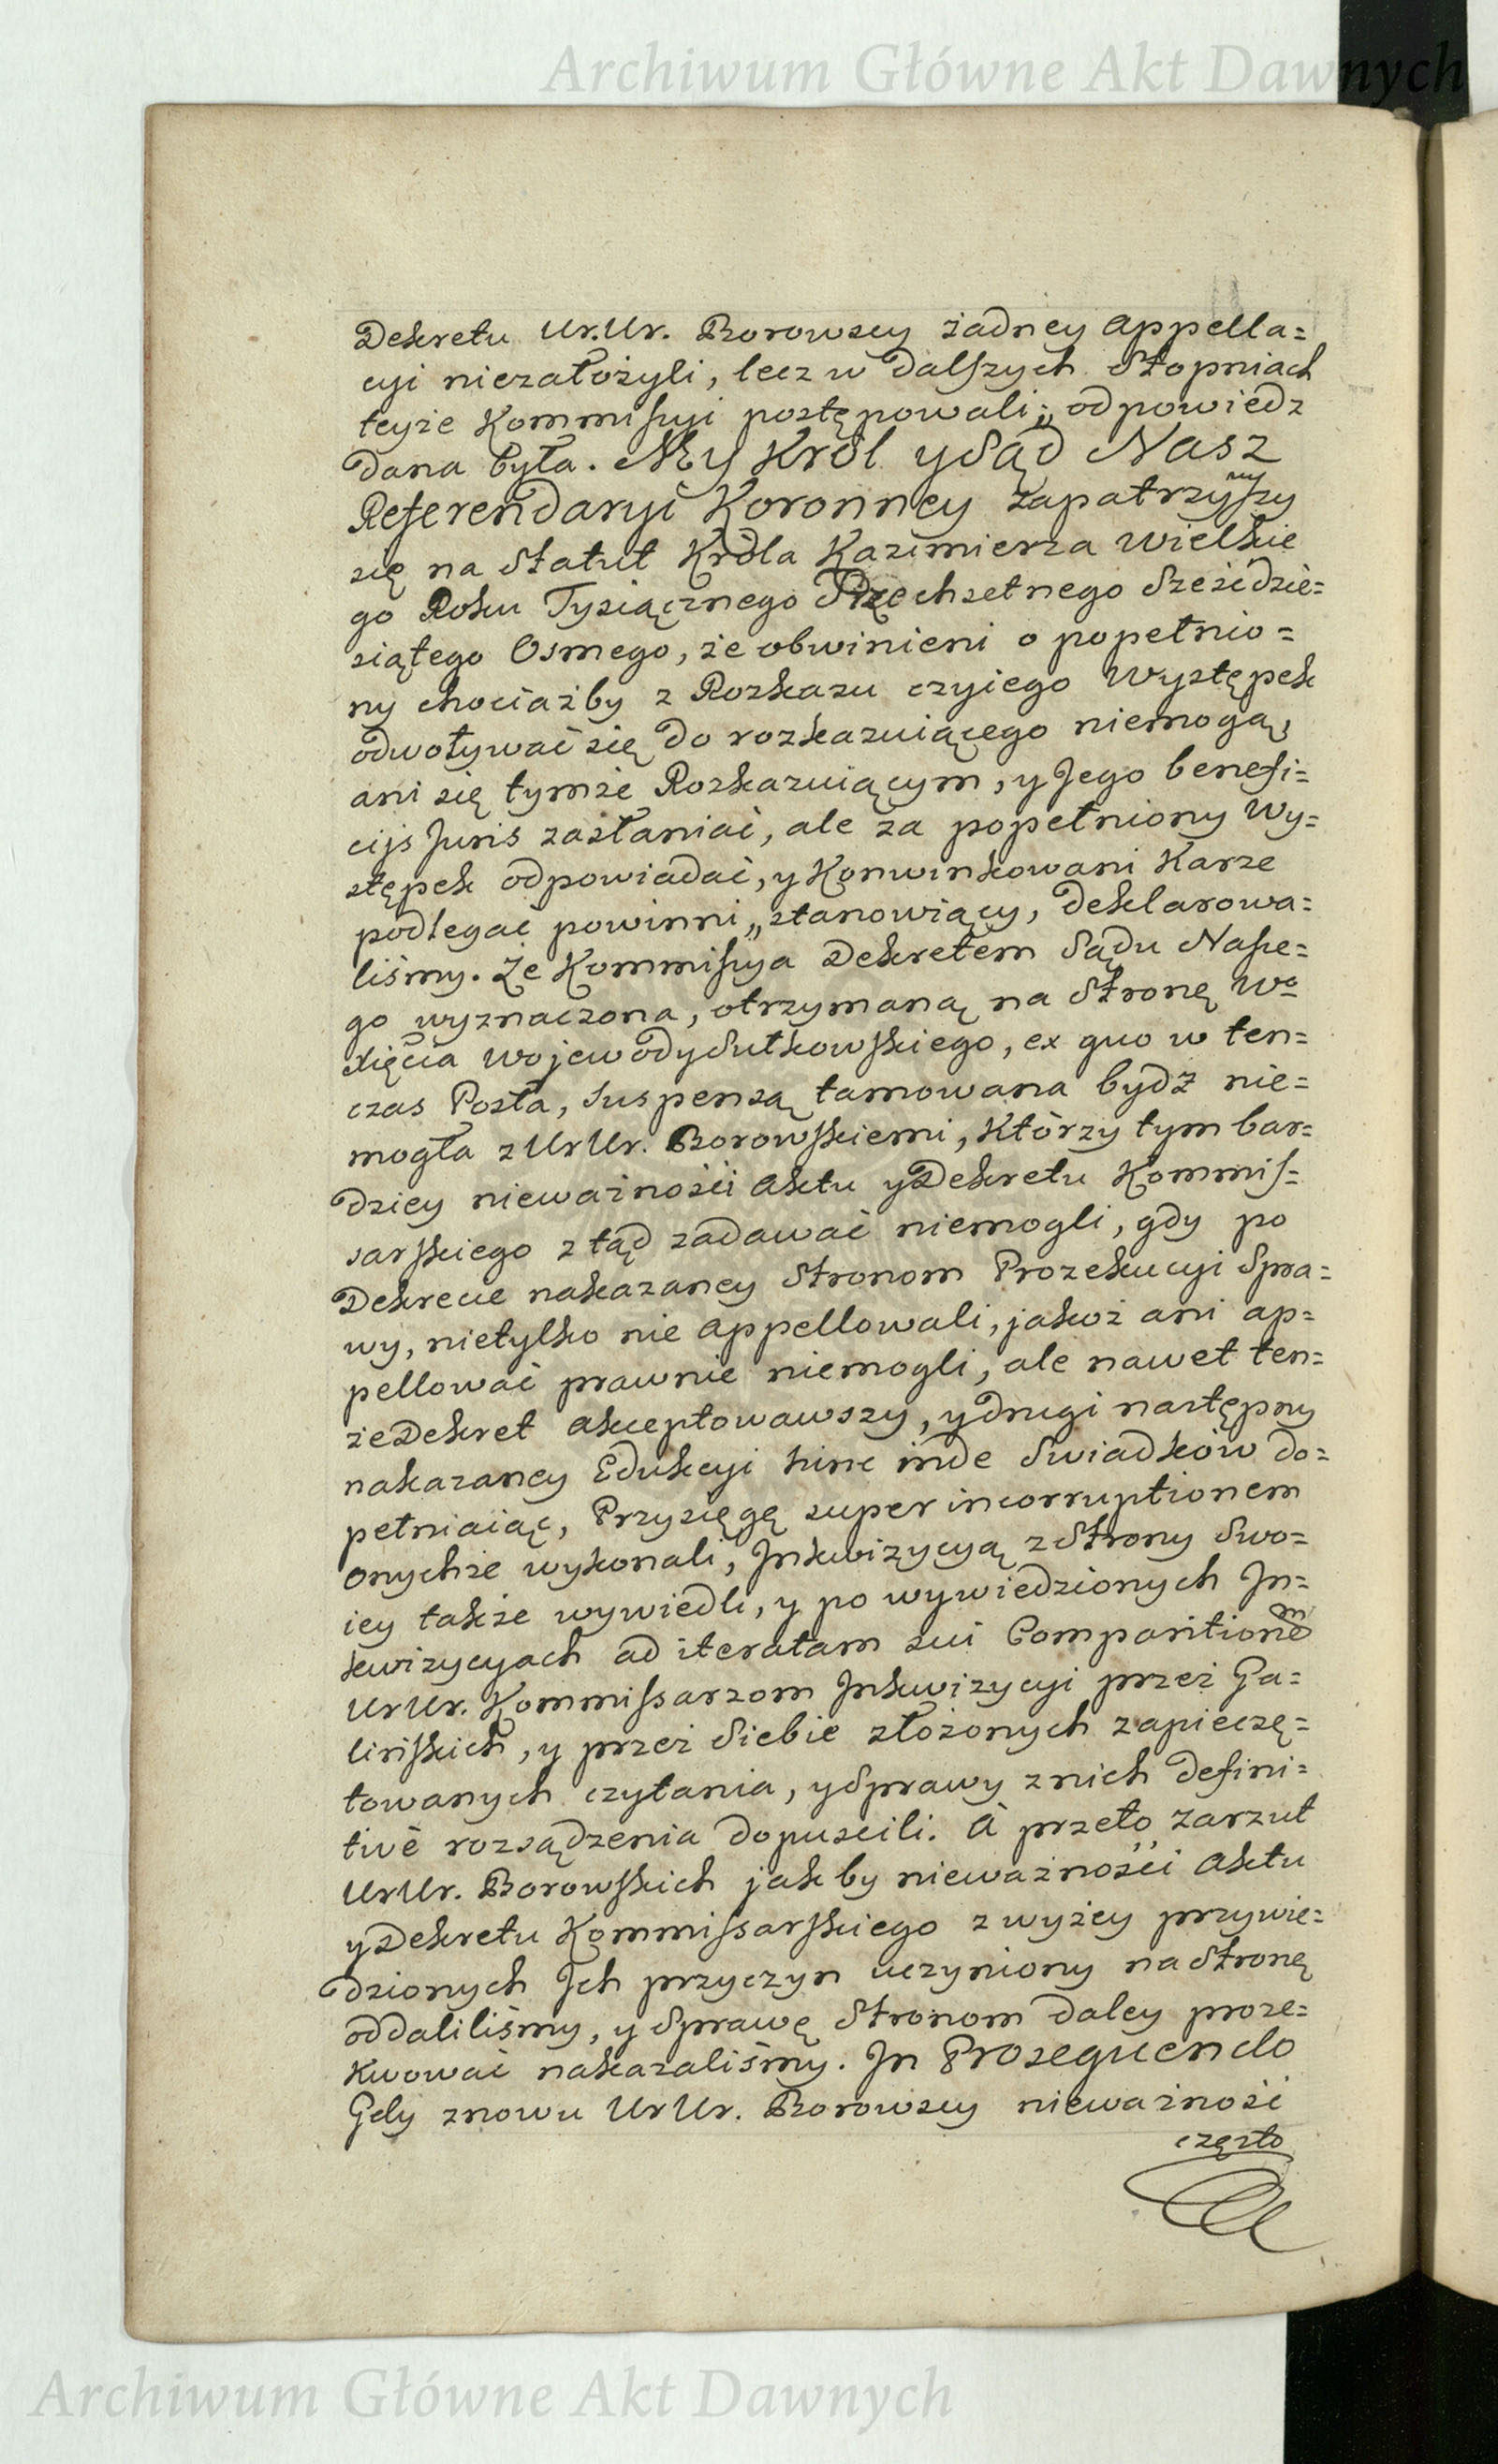 Archiwum Główne Akt Dawnych
Dekretu Ur. Ur. Borowscy żadney appella=
cyi niezałożyli, lecz w dalszych Stopniach
teyże Kommissyi postępowali;„ odpowiedz
dana była. My Król y Sąd Nasz
Referendaryi Koronney zapatrzywszy
się na Statut Króla Kazimierza Wielkie
go Roku Tysiącznego Trzechsetnego Sześćdzie=
siątego Osmego, że obwinieni o popełnio=
ny chociażby z Rozkazu czyiego Występek
odwoływać się do rozkazuiącego niemogą,
ani się tymże Rozkazuiącym, y Jego benefi=
cijs Juris zasłaniać, ale za popełniony Wy=
stępek odpowiadać, y Konwinkowani Karze
podlegać powinni„ stanowiący, deklarowa=
liśmy. Że Kommissya Dekretem Sądu Nasze=
go wyznaczona, otrzymaną na Stronę Wo
Xięcia Wojewody Sułkowskiego, ex quo w ten=
czas Posła, Suspensą tamowana bydź nie=
mogła z Ur Ur. Borowskiemi, Którzy tym bar=
dziey nieważności Aktu y Dekretu Kommis=
sarskiego ztąd zadawać niemogli, gdy po
Dekrecie nakazaney Stronom Prozekucyi Spra=
wy, nietylko nie appellowali, jakoż ani ap=
pellować prawnie niemogli, ale nawet ten=
że Dekret akceptowawszy, y drugi następny
nakazaney Edukcyi hinc inde Swiadków do=
pełniaiąc, Przysięgę super incorruptionem
onychże wykonali, Inkwizycyą z Strony Swo=
iey także wywiedli, y po wywiedzionych In=
kwizycyach ad iteratam sui Comparitionem
Ur Ur. Kommissarzom Inkwizycyi przez Ga=
lińskich, y przez Siebie złożonych zapieczę=
towanych czytania, y Sprawy z nich defini=
tivè rozsądzenia dopuscili. A przeto zarzut
Ur Ur. Borowskich jakby nieważności Aktu
y Dekretu Kommissarskiego z wyżey przywie=
dzionych Jch przyczyn uczyniony na Stronę
oddaliliśmy, y Sprawę Stronom daley proze=
kwować nakazaliśmy. In Prosequendo
Gdy znowu Ur Ur. Borowscy nieważność
często
Archiwum Główne Akt Dawnych